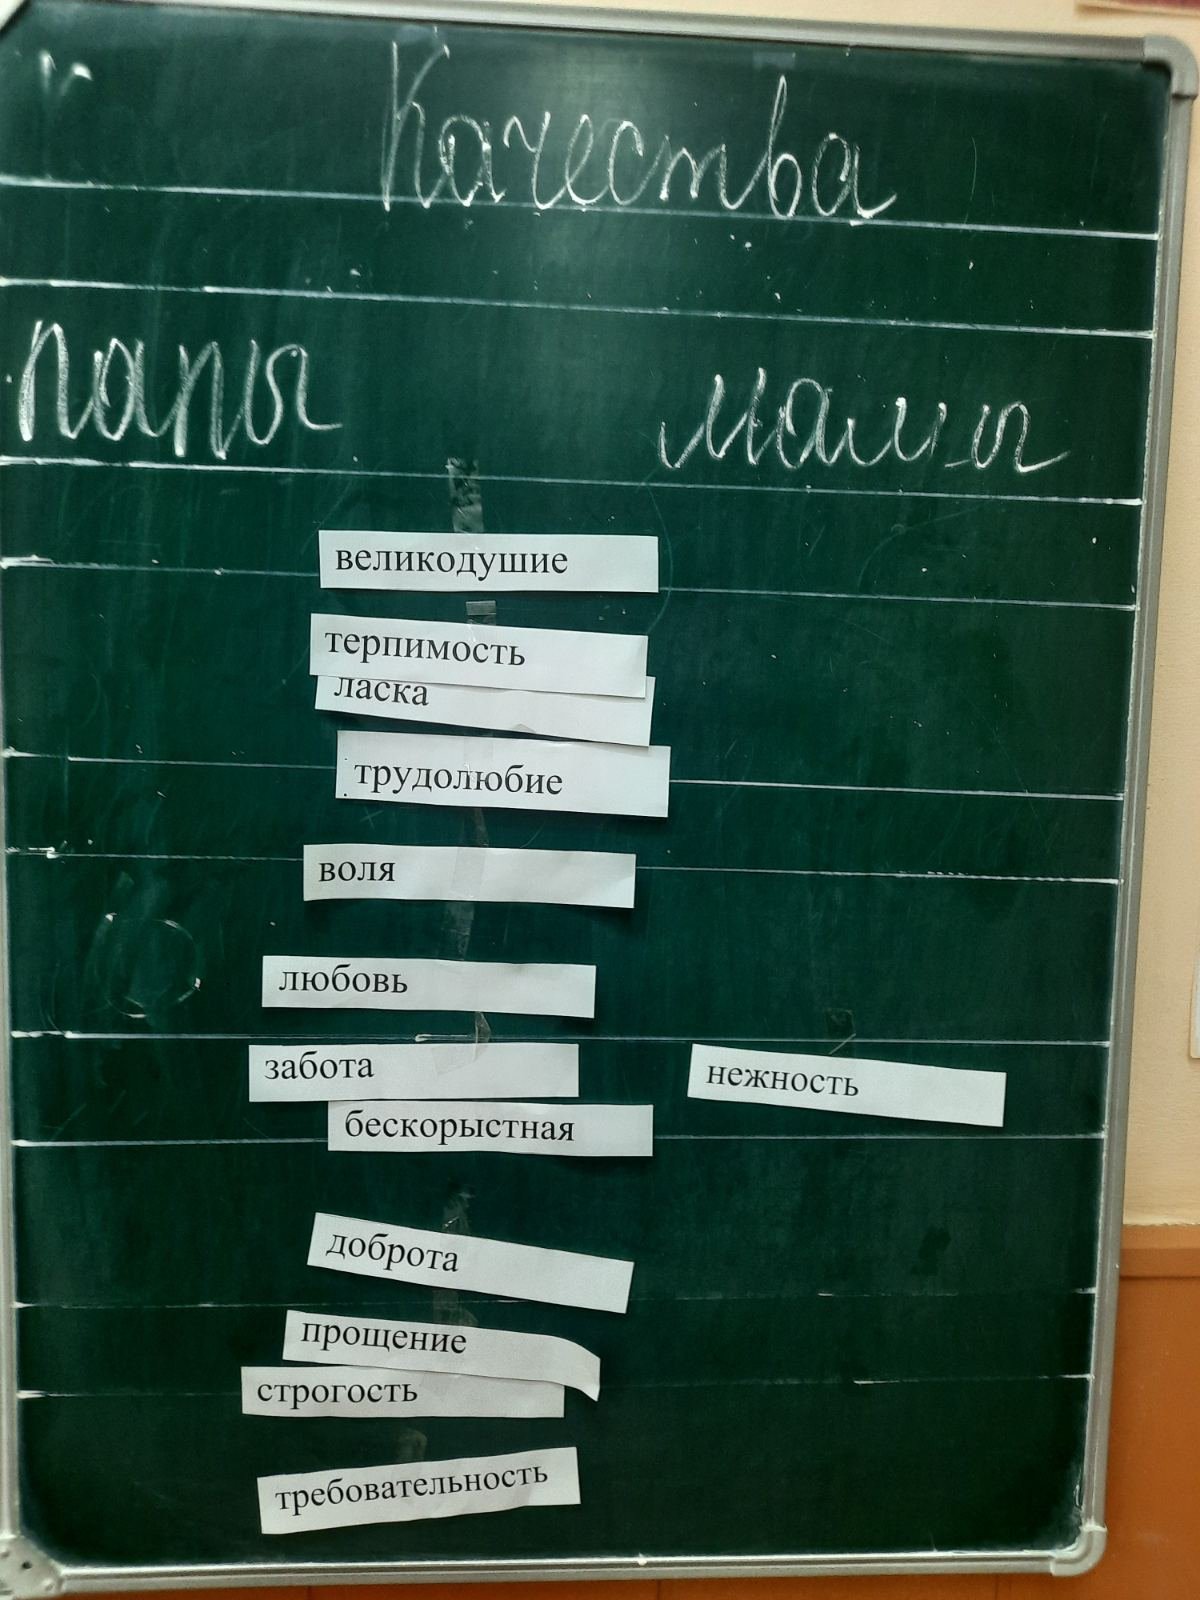 Качества
папы мамы
великодушие
терпимость
ласка
трудолюбие
воля
любовь
забота
нежность
бескорыстная
доброта
прощение
строгость
требовательность